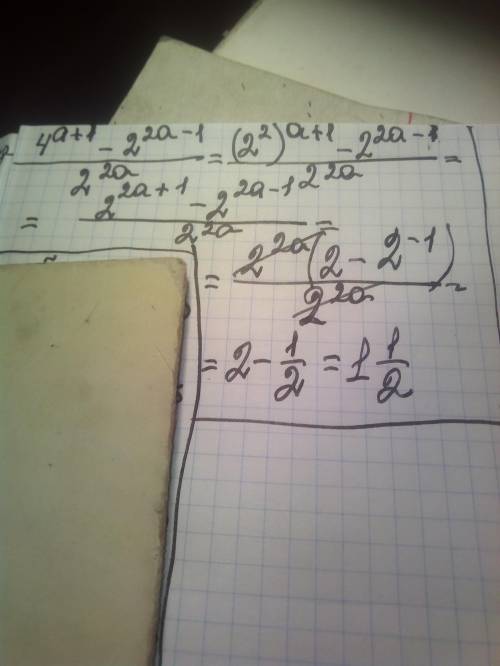 (4^(a+1) - 2^(2a-1))/2^(2a) = ((2^2)^(a+1) - 2^(2a-1))/2^(2a) =
= (2^(2a+1) - 2^(2a-1))/2^(2a) =
= (2^(2a)(2 - 2^(-1)))/2^(2a) =
= 2 - 1/2 = 1 1/2